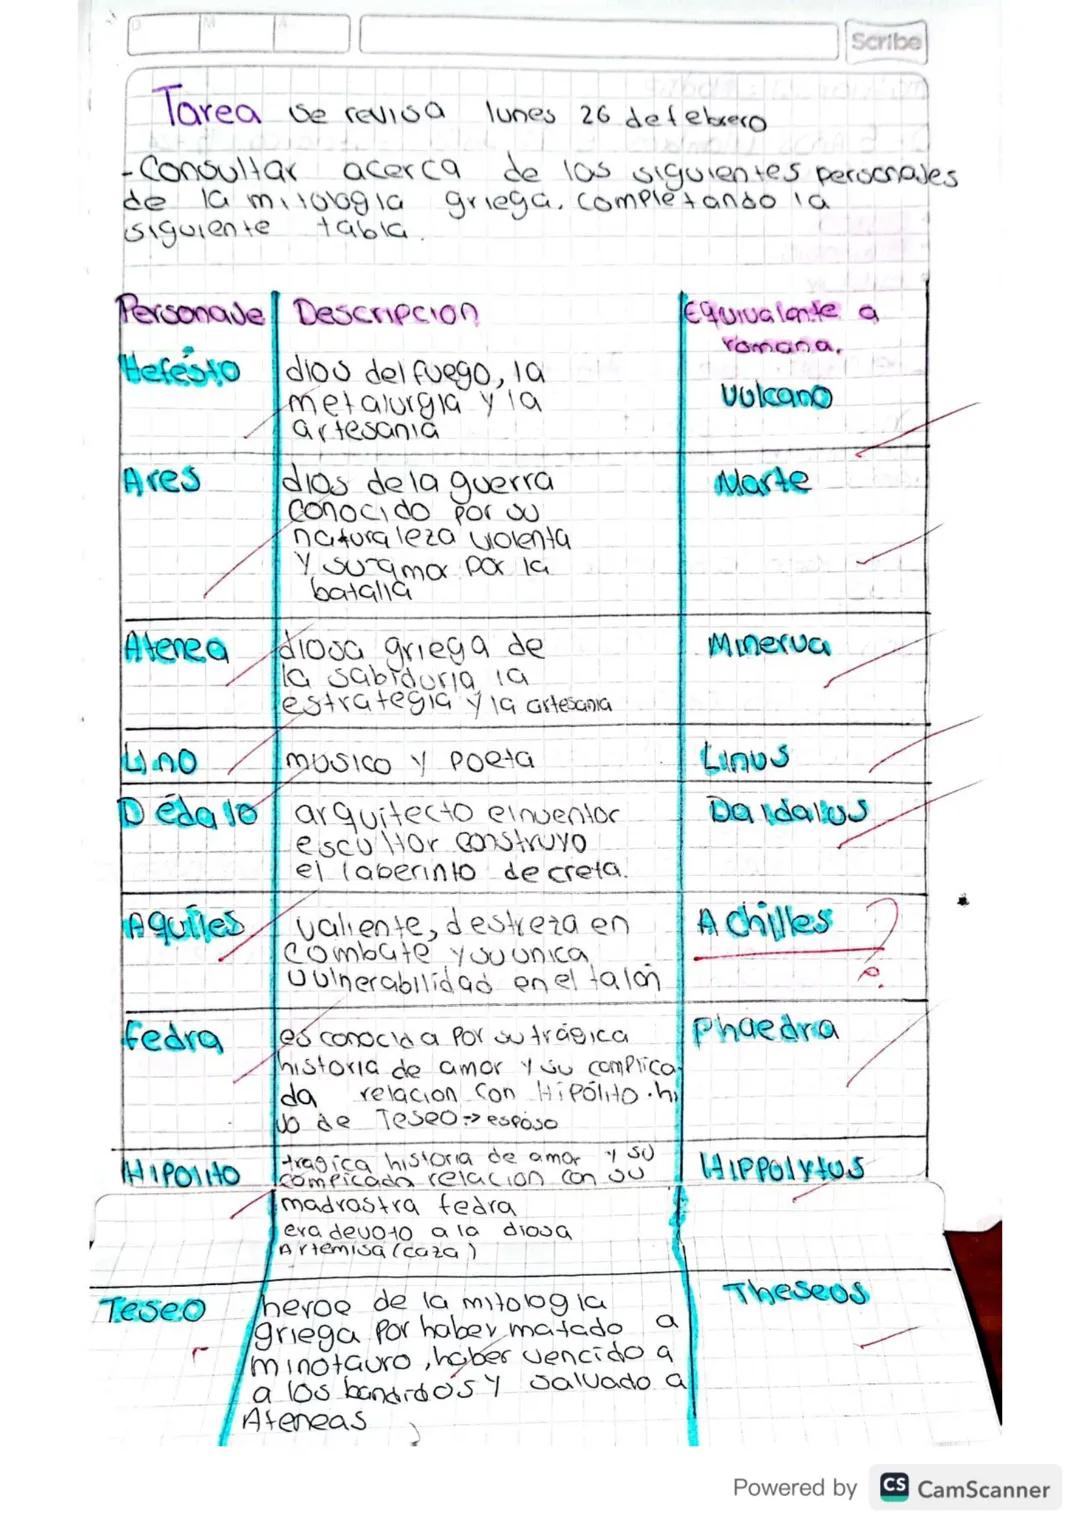 D M A
Scribe
Tarea se revisa lunes 26 de febrero
- Consultar acerca de los siguientes personajes
de la mitologia griega. completando la
siguiente tabla.
Personaje Descripcion Equivalente a
romana.
Hefesto dios del fuego, la
metalurgia y la
artesania
Vulcano
Ares dios de la guerra
conocido por su
naturaleza violenta
y su amor por la
batalla
Marte
Atenea diosa griega de
la sabiduria la
estrategia y la artesania
Minerva
Lino musico y poeta Linus
Dédalo arquitecto e inventor
escultor construyo
el laberinto de creta.
Daidalus
Aquiles valiente, destreza en
combate y su unica
vulnerabilidad en el talón
Achilles ?
Fedra es conocida por su trágica
historia de amor y su complica
da relacion con Hipólito. hi
jo de Teseo -> esposo
Phaedra
Hipolito tragica historia de amor y su
compicada relacion con su
madrastra fedra
era devoto a la diosa
Artemisa (caza)
Hippolytus
Teseo heroe de la mitologia
griega por haber matado a
minotauro, haber vencido a
a los bandidos y salvado a
Ateneas
Theseos
Powered by CS CamScanner